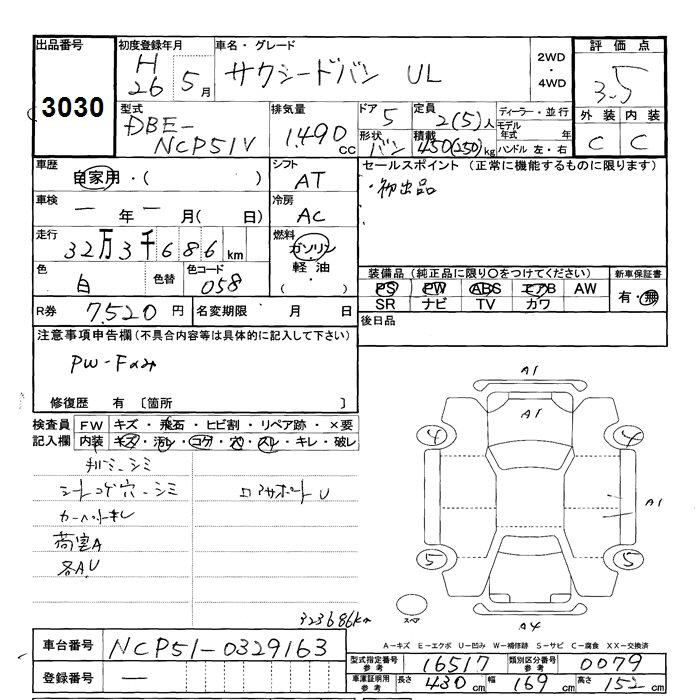 出品番号
3030
初度登録年月
H
26 5月
車名・グレード
サクシードバン UL
2WD
・
4WD
評価点
3.5
外装 内装
C C
型式
DBE-
NCP51V
排気量
1,490
cc
ドア 5
形状 バン
定員 2(5)人
積載 450(250)kg
ディーラー・並行
モデル年式 年
ハンドル 左・右
車歴
自家用・( )
シフト
AT
セールスポイント (正常に機能するものに限ります)
・初出品
車検
― 年 ― 月( 日)
冷房
AC
走行
32万3千686km
燃料
ガソリン
軽油
( ・ )
色
白
色替
色コード
058
装備品 (純正品に限り〇をつけてください)
PS PW ABS エアB AW
SR ナビ TV カワ
新車保証書
有・無
R券 7,520円
名変期限 月 日
後日品
注意事項申告欄(不具合内容等は具体的に記入して下さい)
PW-Fのみ
修復歴 有 [箇所 ]
検査員
記入欄
FW キズ・飛石・ヒビ割・リペア跡・×要
内装 キズ・汚レ・コゲ・穴・スレ・キレ・破レ
シートコゲ穴・シミ
カーペットキレ
荷室A
各A,U
コアサポートU
323686km
A1
A1
4
4
A1
5
5
スペア
A4
A―キズ E―エクボ U―凹み W―補修跡 S―サビ C―腐食 XX―交換済
車台番号 NCP51-0329163
登録番号 ―
型式指定番号
参考
16517
類別区分番号
参考
0079
車庫証明用
参考
長さ 430cm 幅 169cm 高さ 152cm